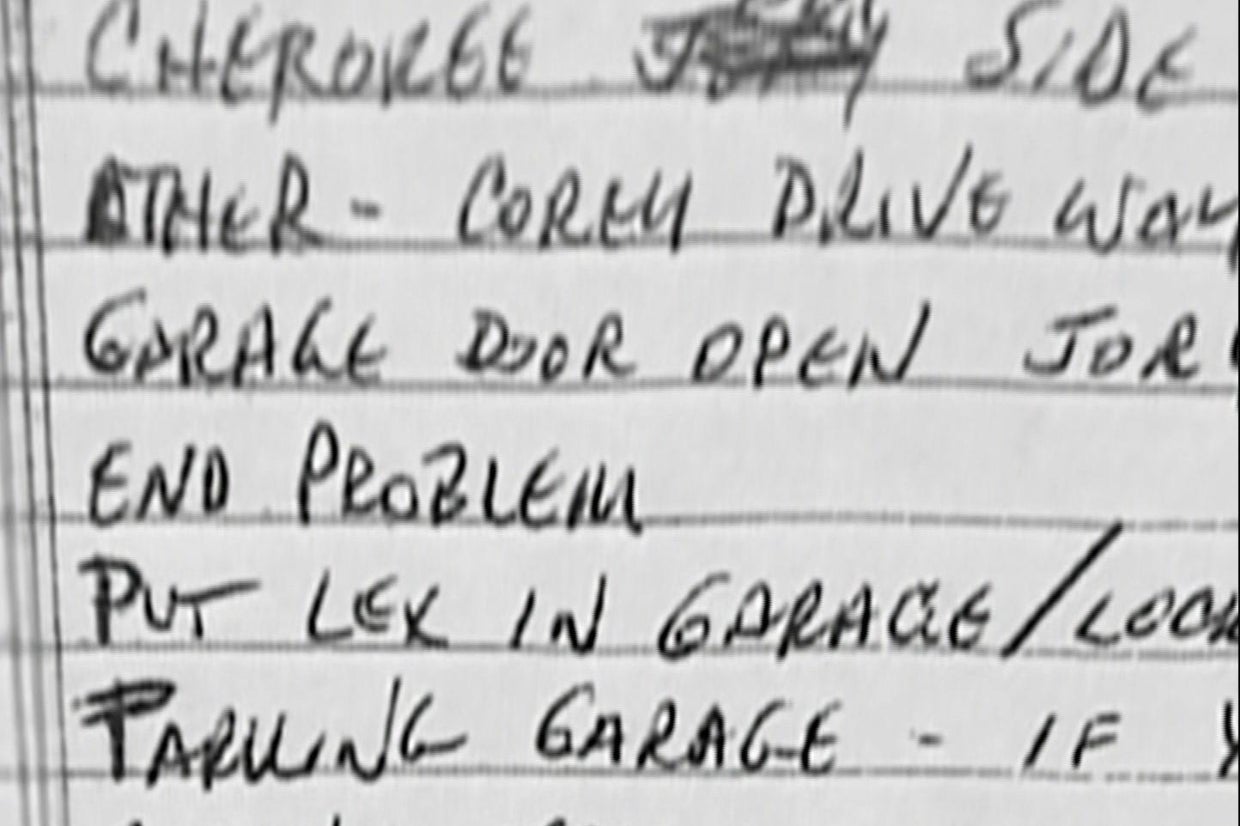 CHEROKEE SIDE
ATHER - COREY DRIVE WAY
GARAGE DOOR OPEN JOR
END PROBLEM
PUT LEX IN GARAGE/LOCK
PARKING GARAGE - IF Y